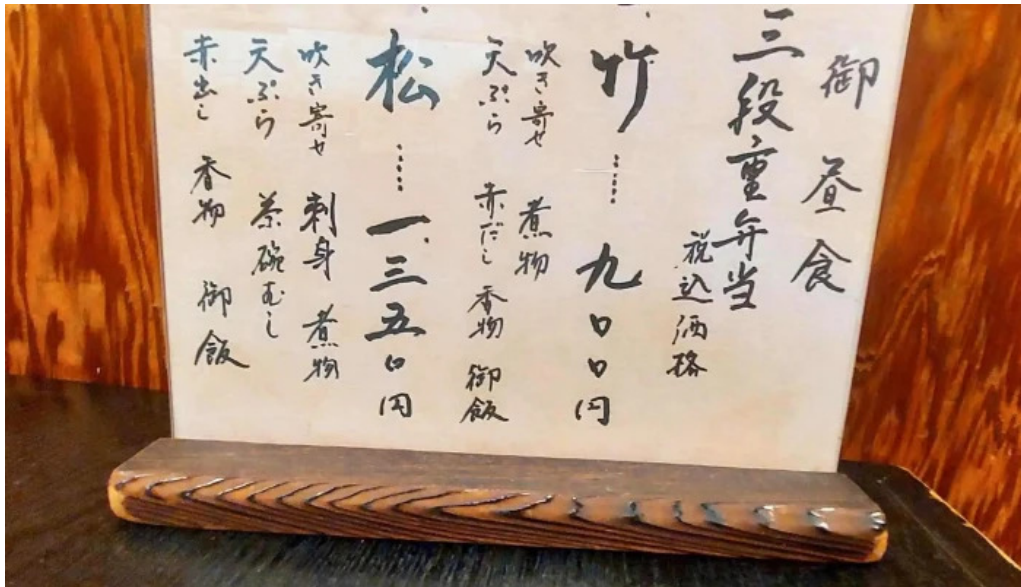 御昼食
三段重弁当
税込価格
竹……九〇〇円
吹き寄せ 煮物
天ぷら 赤だし 香物 御飯
松……一三五〇円
吹き寄せ 刺身 煮物
天ぷら 茶碗むし
赤出し 香物 御飯